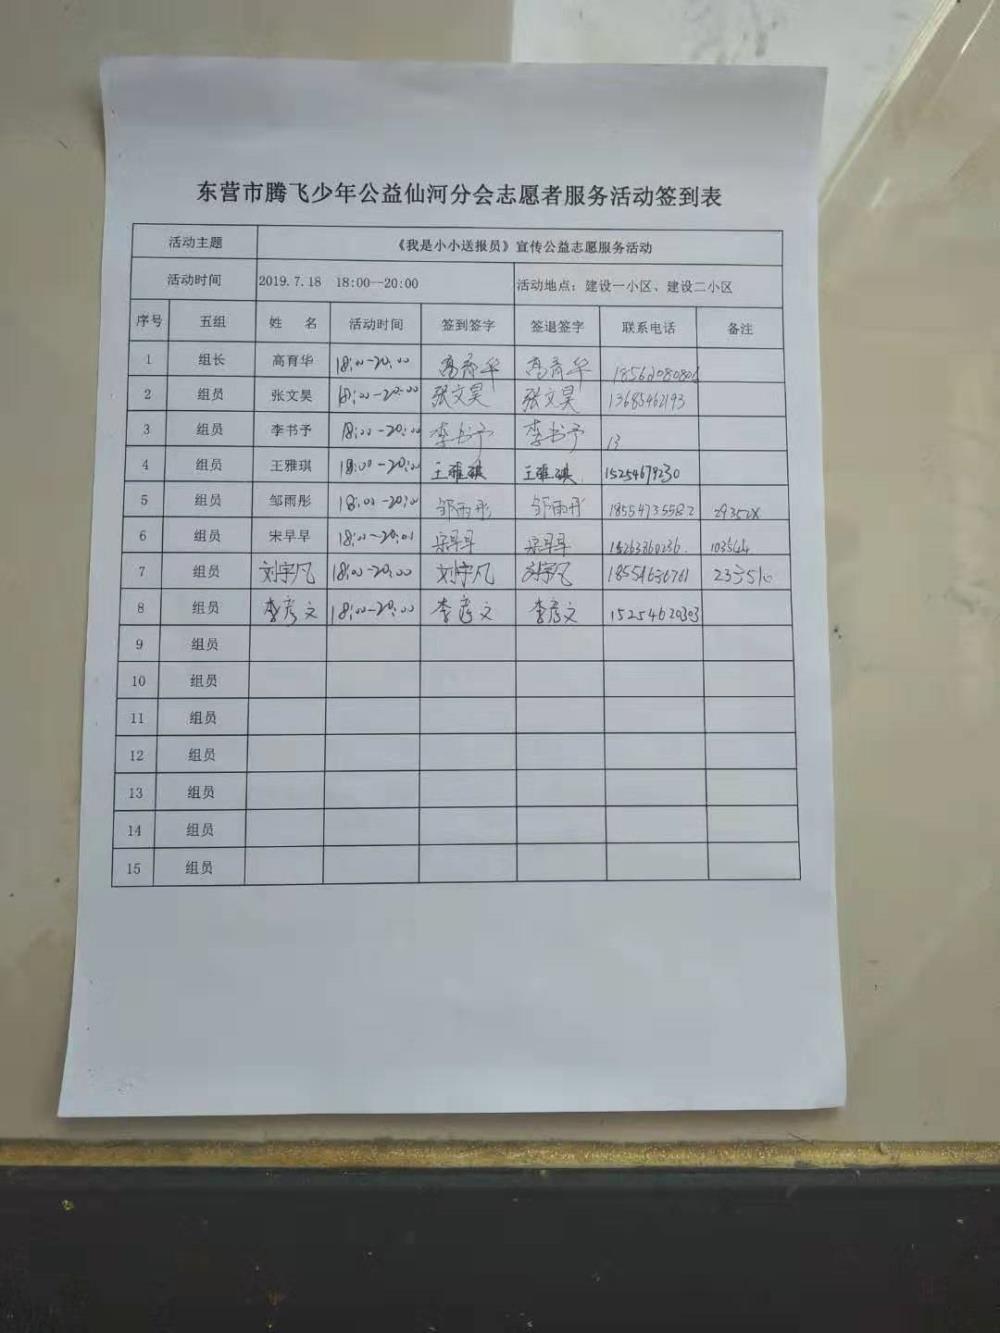 东营市腾飞少年公益仙河分会志愿者服务活动签到表
活动主题 《我是小小送报员》宣传公益志愿服务活动
活动时间 2019.7.18 18:00--20:00 活动地点：建设一小区、建设二小区
序号 五组 姓 名 活动时间 签到签字 签退签字 联系电话 备注
1 组长 高育华 18:00-20:00 高育华 高育华
2 组员 张文昊 18:00-20:00 张文昊 张文昊 13685462193
3 组员 李书予 18:00-20:00 李书予 李书予 13
4 组员 王雅琪 18:00-20:00 王雅琪 王雅琪 15254679230
5 组员 邹雨彤 18:00-20:00 邹雨彤 邹雨彤 18554735582
6 组员 宋早早 18:00-20:00 宋早早 宋早早 15263860236 103544
7 组员 刘宇凡 18:00-20:00 刘宇凡 刘宇凡 18554636761
8 组员 李彦文 18:00-20:00 李彦文 李彦文 15254620303
9 组员
10 组员
11 组员
12 组员
13 组员
14 组员
15 组员